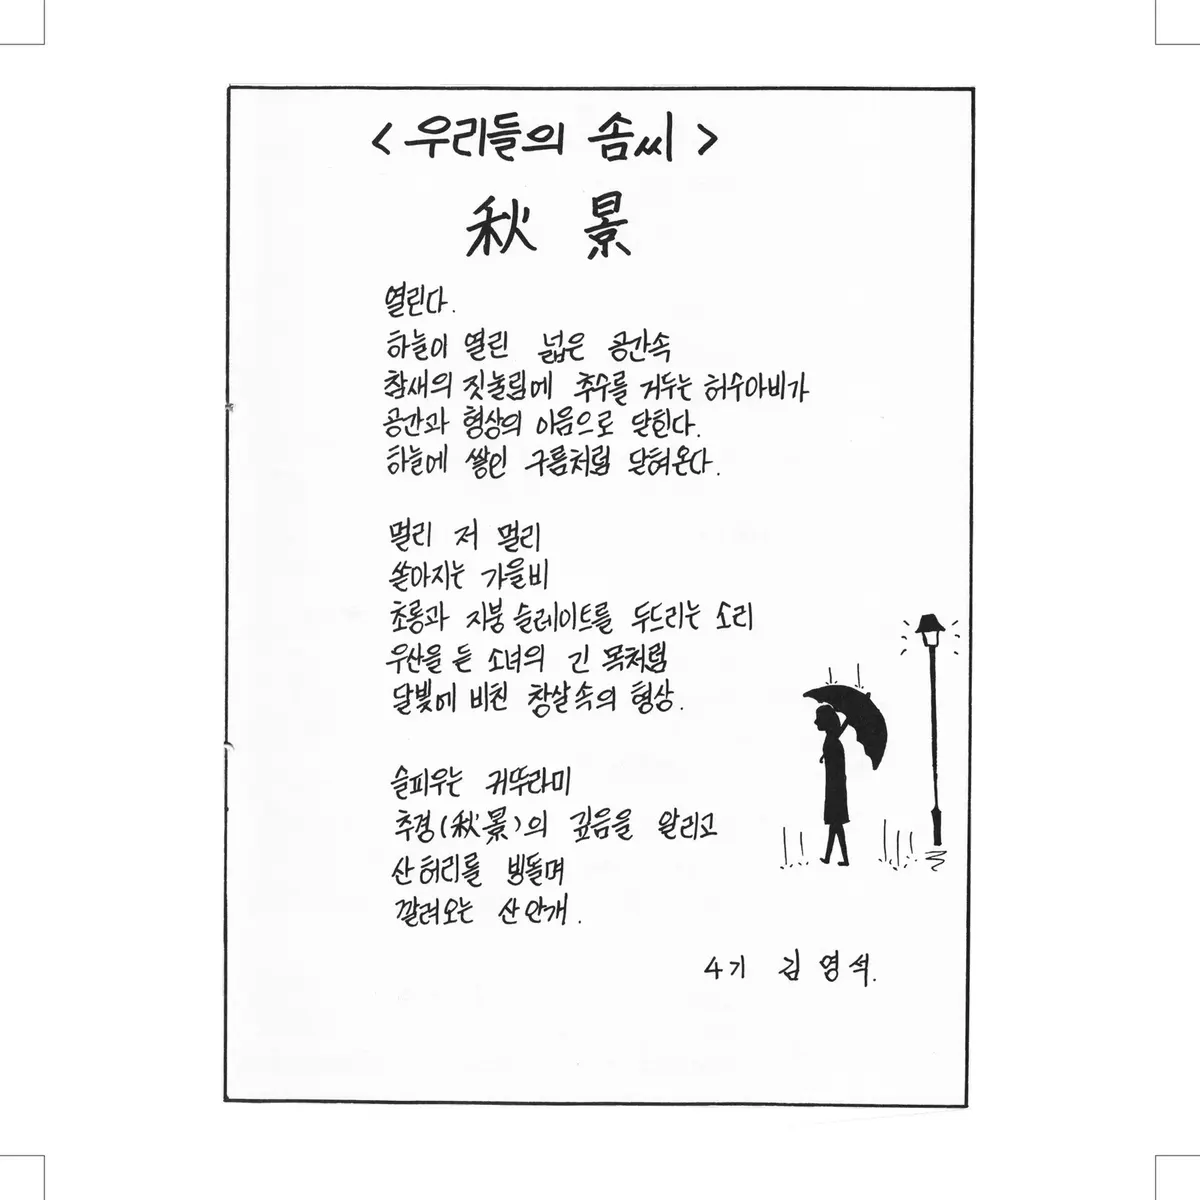 <우리들의 솜씨>
秋景
열린다.
하늘이 열린 넓은 공간속
참새의 짓눌림에 추수를 거두는 허수아비가
공간과 형상의 이음으로 닫힌다.
하늘에 쌓인 구름처럼 닫혀온다.
멀리 저 멀리
쏟아지는 가을비
초롱과 지붕 슬레이트를 두드리는 소리
우산을 든 소녀의 긴 목처럼
달빛에 비친 창살속의 형상.
슬피우는 귀뚜라미
추경(秋景)의 깊음을 알리고
산허리를 빙돌며
깔려오는 산안개.
4기 김영석.